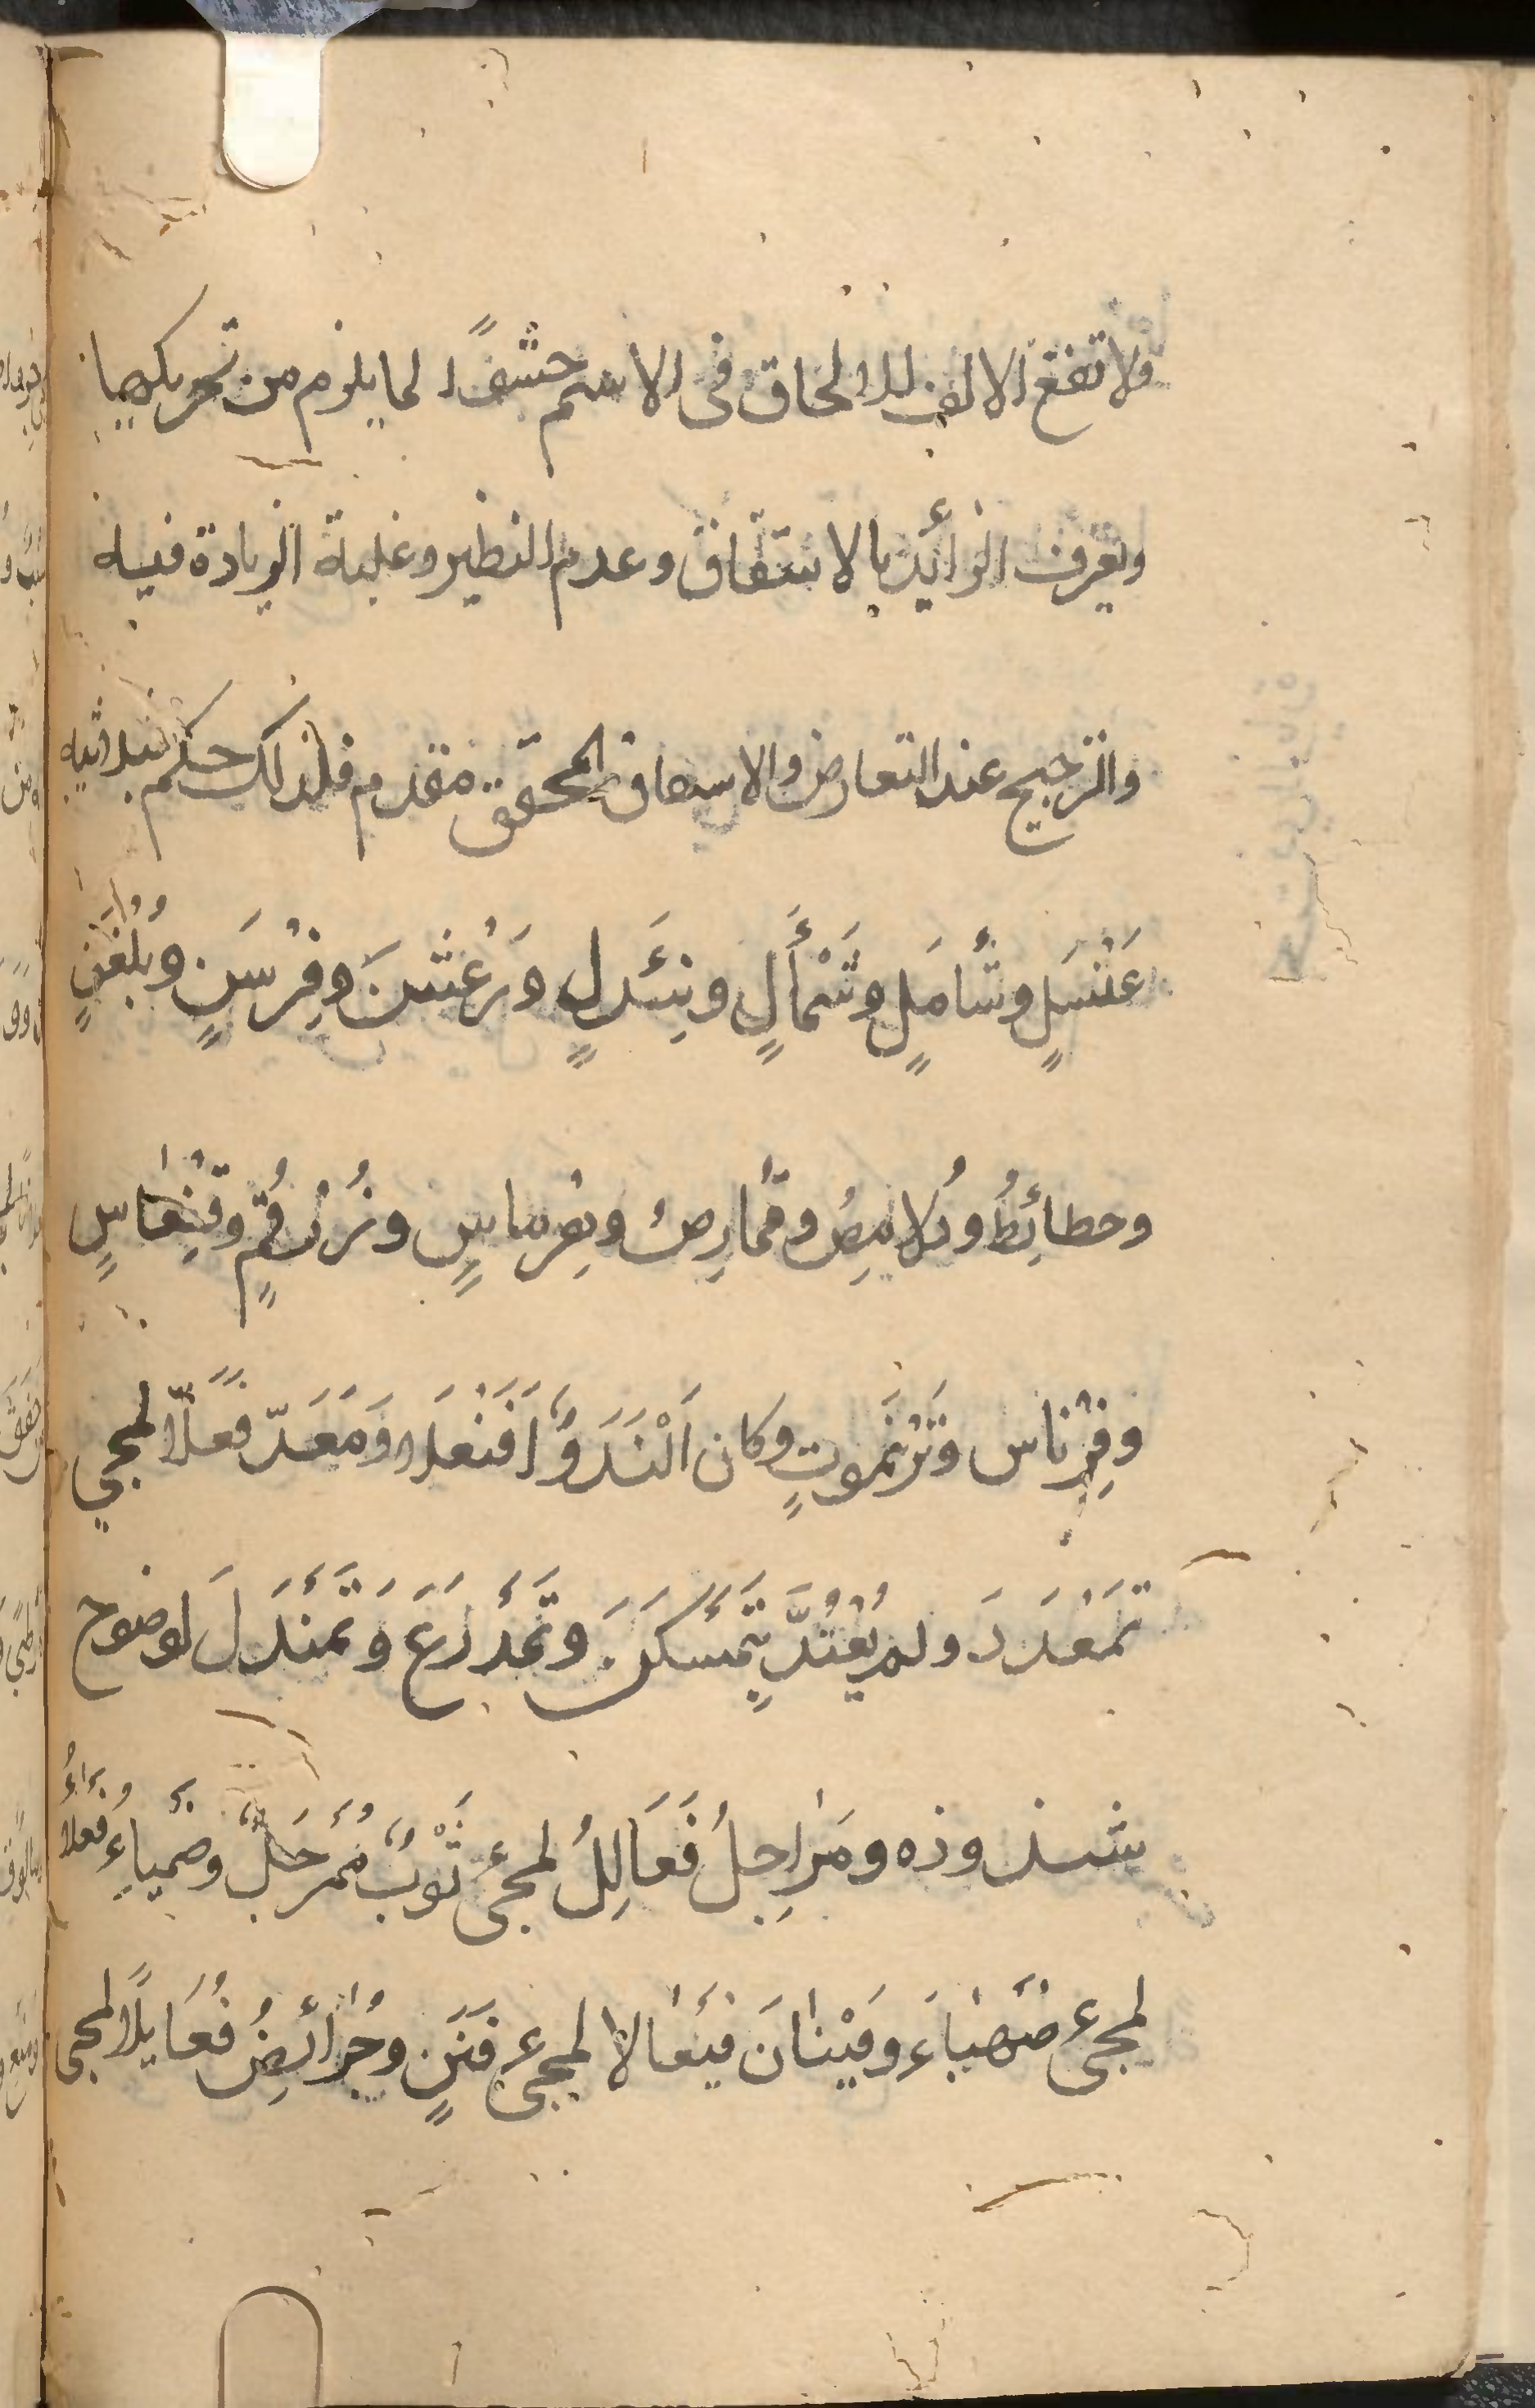 ولا تقع الالف للالحاق في الاسم حشوًا لما يلزم من تحريكها
ويعرف الزائد بالاشتقاق وعدم النظير وغلبة الزيادة فيه
والترجيح عند التعارض والاشتقاق المحقق مقدم فلذلك حكم بثلاثية
عَنْسَلٍ وشَأْمَلٍ وشَمْأَلٍ ونِئْدَلٍ ورَعْشَنَ وفِرْسَنٍ وبُلَغْنٍ
وحطائِطُ ودُلامِصُ وقُمارِصُ وهِرْماسٍ وزُرْقُمٍ وقِنْعاسٍ
وفِرْناس وتَرْنَمُوتٍ وكان اَلَنْدَدٌ اَفَنْعَلا ومَعَدّ فَعَلاًّ لمجي
تَمَعْدَدَ ولم يُعْتَدَّ بِتَمَسْكَنَ وتَمَدْرَعَ وتَمَنْدَلَ لوضوح
شذوذه ومَراجِلُ فَعَالِلُ لمجئ ثَوْبٌ مُمَرْجَلٌ وضَهْياءِ فَعْلاءُ
لمجئ ضَهْياءَ وفَيْنانَ فَيْعالا لمجئ فَنَنٍ وجُرائِضُ فُعَايلًا لمجى